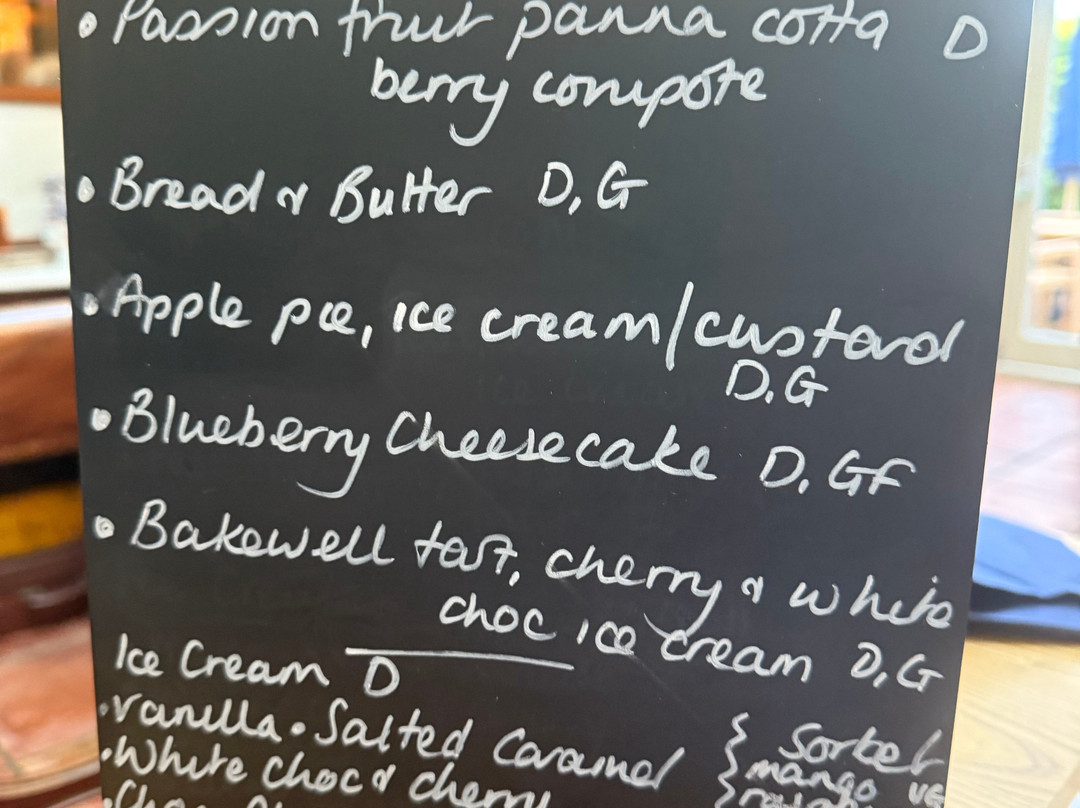 • Passion fruit panna cotta D
berry compôte
• Bread & Butter D, G
• Apple pie, ice cream/custard
D, G
• Blueberry Cheesecake D, GF
• Bakewell tart, cherry & white
choc ice cream D, G
Ice Cream D
• Vanilla • Salted Caramel } Sorbet
• White choc & cherry } mango ve
• Choc